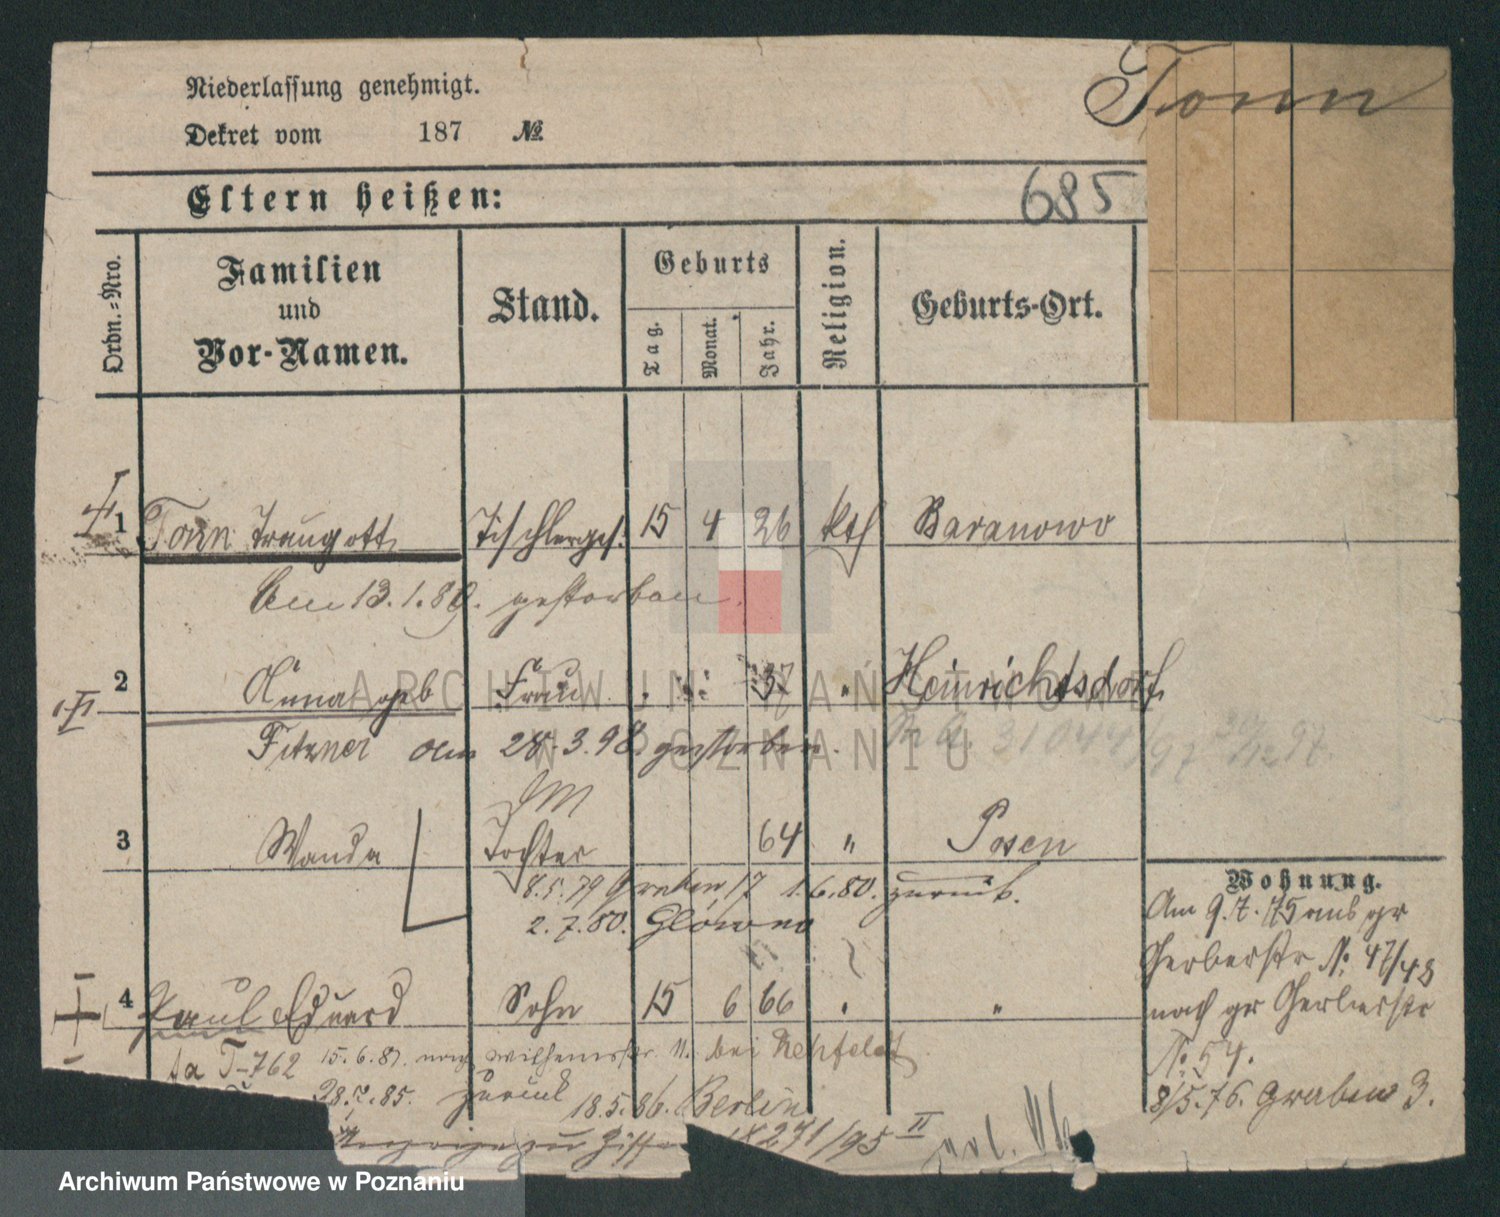 Niederlassung genehmigt.
Tonn
Dekret vom 187 №
Eltern heißen:
685
Ordn.-Nro.
Familien und Vor-Namen.
Stand.
Geburts
Tag.
Monat.
Jahr.
Religion.
Geburts-Ort.
1 Tonn Traugott Tischlerges. 15 4 26 kth Baranowo
Am 13.1.89. gestorben.
2 Anna geb Frau 37 " Heinrichtsdorf
Fitzner am 28.3.98. gestorben.
3 Wanda Tochter 64 " Posen
8.5.79 Graben 17 1.6.80. zurück.
2.7.80. Glowno
4 Paul Eduard Sohn 15 6 66 " "
fa T-762 15.6.81. nach Wilhelmstr. 11. bei Rehfeldt
28.7.85. zurück 18.5.86. Berlin
18271/95 II
Wohnung.
Am 9.7.75 aus gr
Gerberstr No 47/48
nach gr Gerberstr
No 54.
8/5.76. Graben 3.
ARCHIWUM PAŃSTWOWE
W POZNANIU
Archiwum Państwowe w Poznaniu